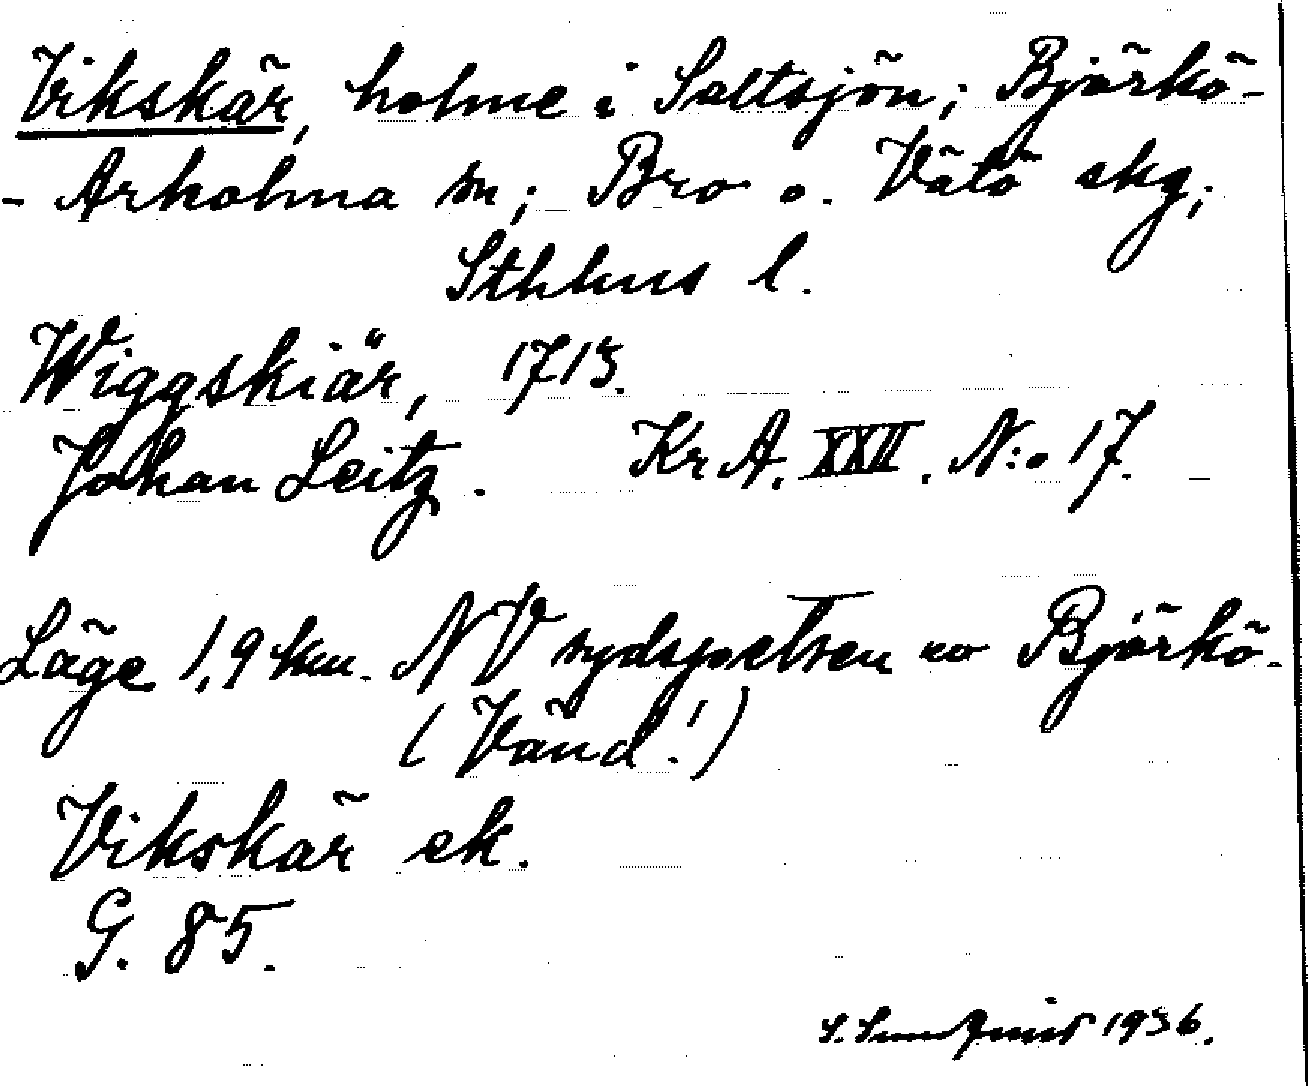 Vikskär, holme i Saltsjön; Björkö-
- Arholma sn; Bro o. Vätö skg;
Sthlms l.
Wiggskiär, 1713.
Johan Leitz. Kr A. XXII. N:o 17.
Läge 1,9 km. NV sydspetsen av Björkö.
(Vänd!)
Vikskär ek.
G. 85.
S. 1936.